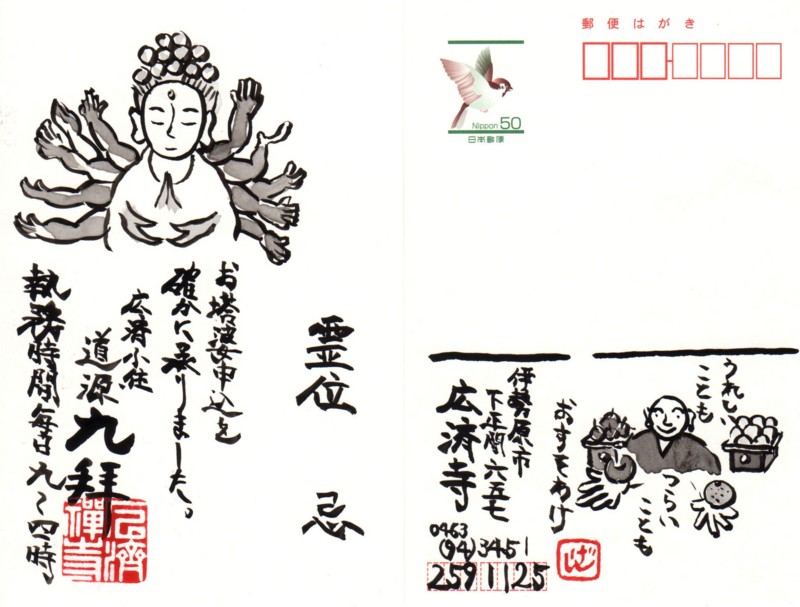 霊位
忌
お塔婆申込を
確かに承りました。
広済小住
道源九拝
執務時間毎日九〜四時
広済禅寺
郵便はがき
Nippon 50
日本郵便
うれしい
ことも
つらい
ことも
おすそわけ
伊勢原市
下平間六五七
広済寺
0463
(94)3451
259 1125